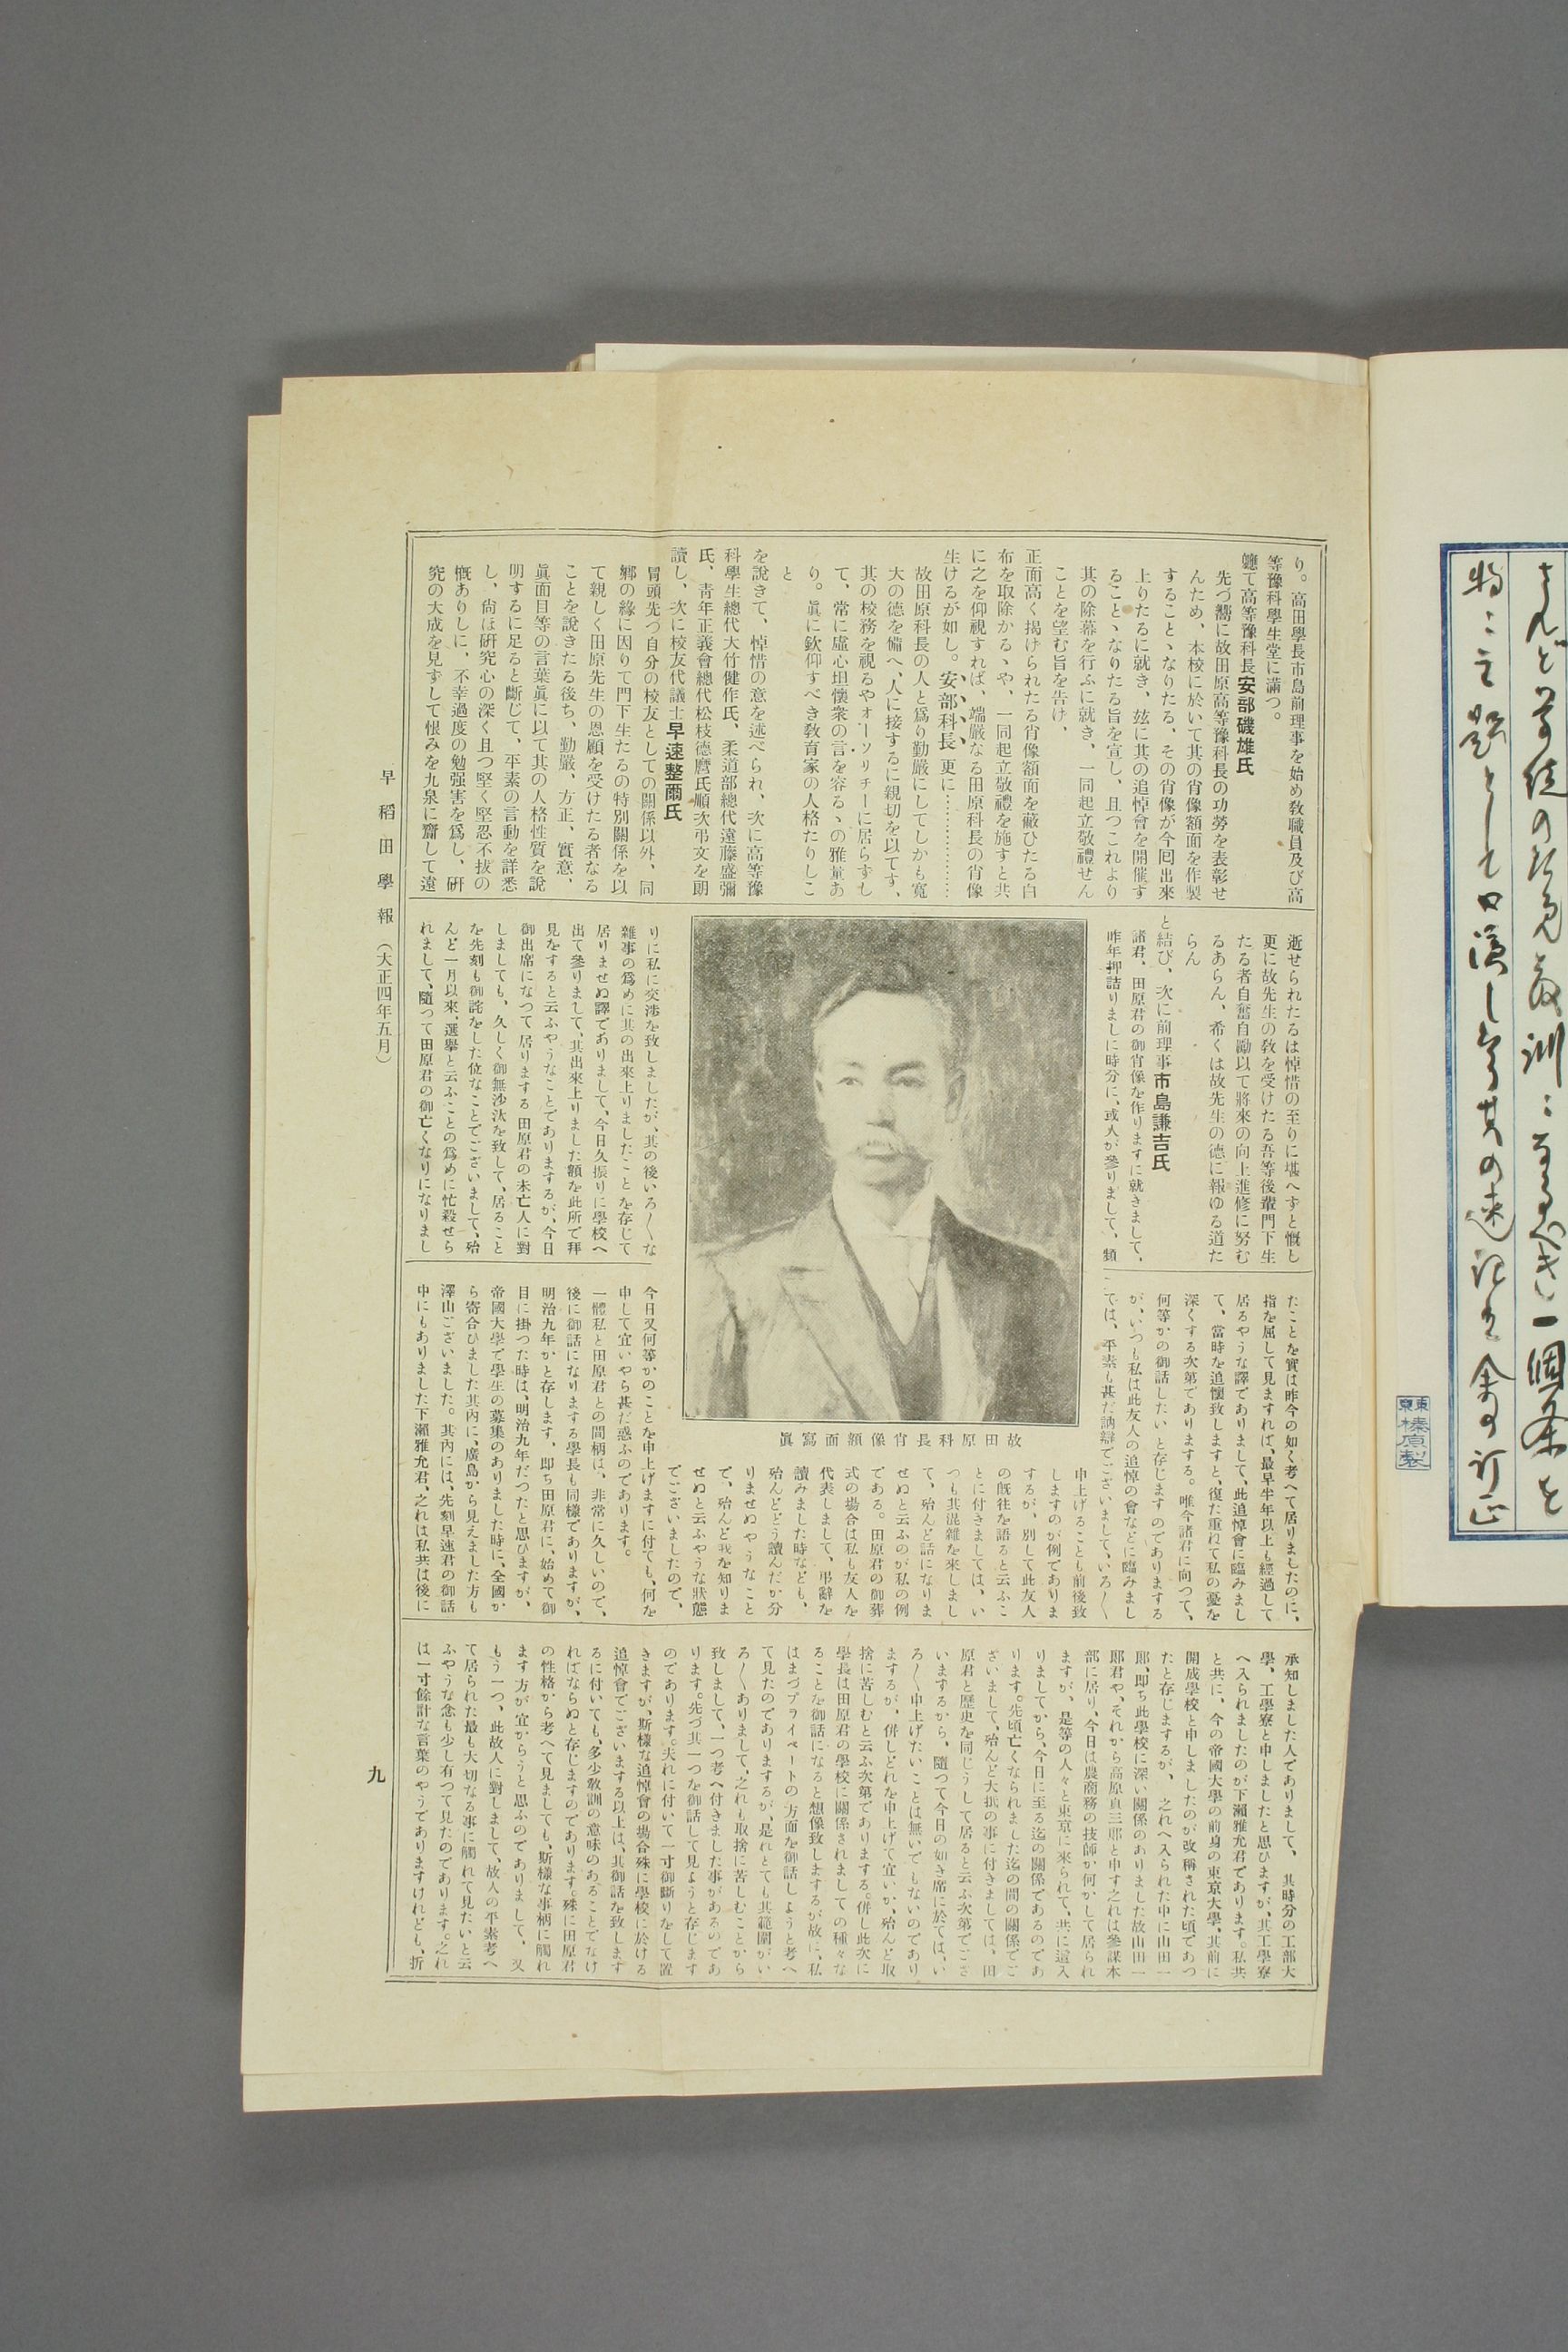 り。高田學長市島前理事を始め敎職員及び高
等豫科學生堂に滿つ。
軈て高等豫科長安部磯雄氏
先づ嚮に故田原高等豫科長の功勞を表彰せ
んため、本校に於いて其の肖像額面を作製
することゝなりたる、その肖像が今囘出來
上りたるに就き、玆に其の追悼會を開催す
ることゝなりたる旨を宣し、且つこれより
其の除幕を行ふに就き、一同起立敬禮せん
ことを望む旨を告け、
正面高く揭げられたる肖像額面を蔽ひたる白
布を取除かるゝや、一同起立敬禮を施すと共
に之を仰視すれば、端嚴なる田原科長の肖像
生けるが如し。安部科長、更に………………
故田原科長の人と爲り勤嚴にしてしかも寬
大の德を備へ、人に接するに親切を以てす、
其の校務を視るやオーソリチーに居らずし
て、常に虛心坦懷衆の言を容るゝの雅量あ
り。眞に欽仰すべき敎育家の人格たりしこ
と
を說きて、悼惜の意を述べられ、次に高等豫
科學生總代大竹健作氏、柔道部總代遠藤盛彌
氏、靑年正義會總代松枝德麿氏順次弔文を朗
讀し、次に校友代議士早速整爾氏
冒頭先づ自分の校友としての關係以外、同
鄕の緣に因りて門下生たるの特別關係を以
て親しく田原先生の恩顧を受けたる者なる
ことを說きたる後ち、勤嚴、方正、實意、
眞面目等の言葉眞に以て其の人格性質を說
明するに足ると斷じて、平素の言動を詳悉
し、尙ほ硏究心の深く且つ堅く堅忍不拔の
慨ありしに、不幸過度の勉强害を爲し、硏
究の大成を見ずして恨みを九泉に齎して遠
逝せられたるは悼惜の至りに堪へずと慨し
更に故先生の敎を受けたる吾等後輩門下生
たる者自奮自勵以て將來の向上進修に努む
るあらん、希くは故先生の德に報ゆる道た
らん
と結び、次に前理事市島謙吉氏
諸君、田原君の御肖像を作りますに就きまして、
昨年押詰りましに時分に、或人が參りまして、頻
りに私に交涉を致しましたが、其の後いろ〱な
雜事の爲めに其の出來上りましたことを存じて
居りませぬ譯でありまして、今日久振りに學校へ
出て參りまして、其出來上りました額を此所で拜
見をすると云ふやうなことでありまするが、今日
御出席になつて居りまする田原君の未亡人に對
しましても、久しく御無沙汰を致して、居ること
を先刻も御詫をした位なことでございまして、殆
んど一月以來、選擧と云ふことの爲めに忙殺せら
れまして、隨つて田原君の御亡くなりになりまし
故田原科長肖像額面寫眞
たことを實は昨今の如く考へて居りましたのに、
指を屈して見ますれば、最早半年以上も經過して
居るやうな譯でありまして、此追悼會に臨みまし
て、當時を追懷致しますと、復た重ねて私の憂を
深くする次第であります。唯今諸君に向つて、
何等かの御話したいと存じますのでありまする
が、いつも私は此友人の追悼の會などに臨みまし
ては、平素も甚だ訥辯でございまして、いろ〱
申上げることも前後致
しますのが例でありま
するが、別して此友人
の旣往を語ると云ふこ
とに付きましては、い
つも其混雜を來しまし
て、殆んど話になりま
せぬと云ふのが私の例
である。田原君の御葬
式の場合は私も友人を
代表しまして、弔辭を
讀みました時なども、
殆んどどう讀んだか分
りませぬやうなこと
で、殆んど我を知りま
せぬと云ふやうな狀態
でございましたので、
今日又何等かのことを申上げますに付ても、何を
申して宜いやら甚だ惑ふのであります。
一體私と田原君との間柄は、非常に久しいので、
後に御話になりまする學長も同樣でありますが、
明治九年かと存じます、卽ち田原君に、始めて御
目に掛つた時は、明治九年だつたと思ひますが、
帝國大學で學生の募集のありました時に、全國か
ら寄合ひました其內に、廣島から見えました方も
澤山ございました。其內には、先刻早速君の御話
中にもありました下瀨雅允君、之れは私共は後に
承知しました人でありまして、其時分の工部大
學、工學寮と申しましたと思ひますが、其工學寮
へ入られましたのが下瀨雅允君であります。私共
と共に、今の帝國大學の前身の東京大學、其前に
開成學校と申しましたのが改稱された頃であつ
たと存じますが、之れへ入られた中に山田一
郞、卽ち此學校に深い關係のありました故山田一
郞君や、それから高原貞三郞と申す之れは參謀本
部に居り、今日は農商務の技師か何かして居られ
ますが、是等の人々と東京に來られて、共に這入
りましてから、今日に至る迄の關係であるのであ
ります。先頃亡くなられました迄の間の關係でご
ざいまして、殆んど大抵の事に付きましては、田
原君と歷史を同じうして居ると云ふ次第でござ
いまするから、隨つて今日の如き席に於ては、い
ろ〱申上げたいことは無いでもないのであり
まするが、併しどれを申上げて宜いか、殆んど取
捨に苦しむと云ふ次第でありまする。併し此次に
學長は田原君の學校に關係されましての種々な
ることを御話になると想像致しまするが故に、私
はまづプライベートの方面を御話しようと考へ
て見たのでありまするが、是れとても其範圍がい
ろ〱ありまして、之れも取捨に苦しむことから
致しまして、一つ考へ付きました事があるのであ
ります。先づ其一つを御話して見ようと存じます
のであります。夫れに付いて一寸御斷りをして置
きますが、斯樣な追悼會の場合殊に學校に於ける
追悼會でございまする以上は、其御話を致します
るに付いても、多少敎訓の意味のあることでなけ
ればならぬと存じますのであります。殊に田原君
の性格から考へて見ましても、斯樣な事柄に觸れ
ます方が宜からうと思ふのでありまして、又
もう一つ、此故人に對しまして、故人の平素考へ
て居られた最も大切なる事に觸れて見たいと云
ふやうな念も少し有つて見たのであります。之れ
は一寸餘計な言葉のやうでありますけれども、折
早稻田學報（大正四年五月）
九
東京
榛原製